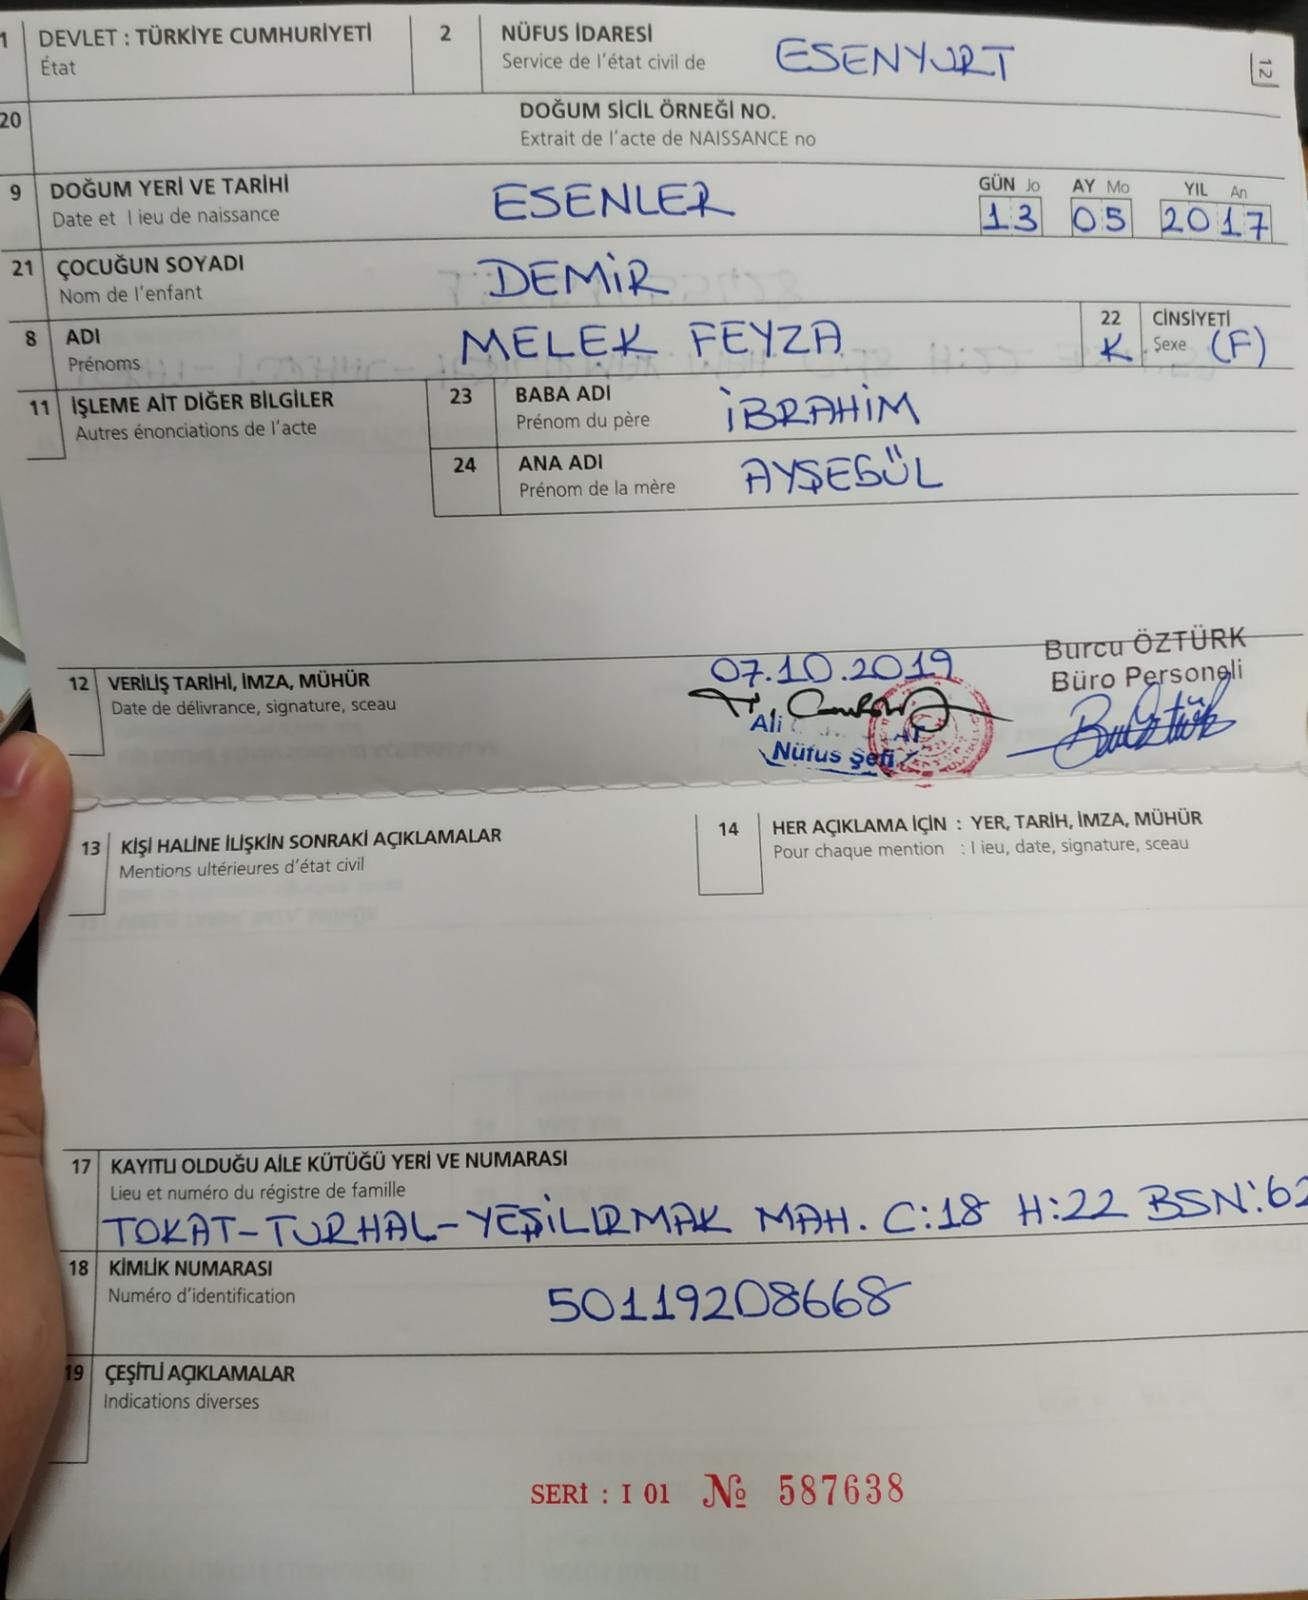 1 DEVLET : TÜRKİYE CUMHURİYETİ
État
2 NÜFUS İDARESİ
Service de l'état civil de
ESENYURT
12
20 DOĞUM SİCİL ÖRNEĞİ NO.
Extrait de l'acte de NAISSANCE no
9 DOĞUM YERİ VE TARİHİ
Date et lieu de naissance
ESENLER
GÜN Jo AY Mo YIL An
13 05 2017
21 ÇOCUĞUN SOYADI
Nom de l'enfant
DEMİR
8 ADI
Prénoms
MELEK FEYZA
22 CİNSİYETİ
K Şexe (F)
11 İŞLEME AİT DİĞER BİLGİLER
Autres énonciations de l'acte
23 BABA ADI
Prénom du père
İBRAHİM
24 ANA ADI
Prénom de la mère
AYŞEGÜL
12 VERİLİŞ TARİHİ, İMZA, MÜHÜR
Date de délivrance, signature, sceau
07.10.2019
Ali
Nüfus Şefi
Burcu ÖZTÜRK
Büro Personeli
13 KİŞİ HALİNE İLİŞKİN SONRAKİ AÇIKLAMALAR
Mentions ultérieures d'état civil
14 HER AÇIKLAMA İÇİN : YER, TARİH, İMZA, MÜHÜR
Pour chaque mention : lieu, date, signature, sceau
17 KAYITLI OLDUĞU AİLE KÜTÜĞÜ YERİ VE NUMARASI
Lieu et numéro du régistre de famille
TOKAT-TURHAL-YEŞİLIRMAK MAH. C:18 H:22 BSN:62
18 KİMLİK NUMARASI
Numéro d'identification
50119208668
19 ÇEŞİTLİ AÇIKLAMALAR
Indications diverses
SERİ : I 01 № 587638